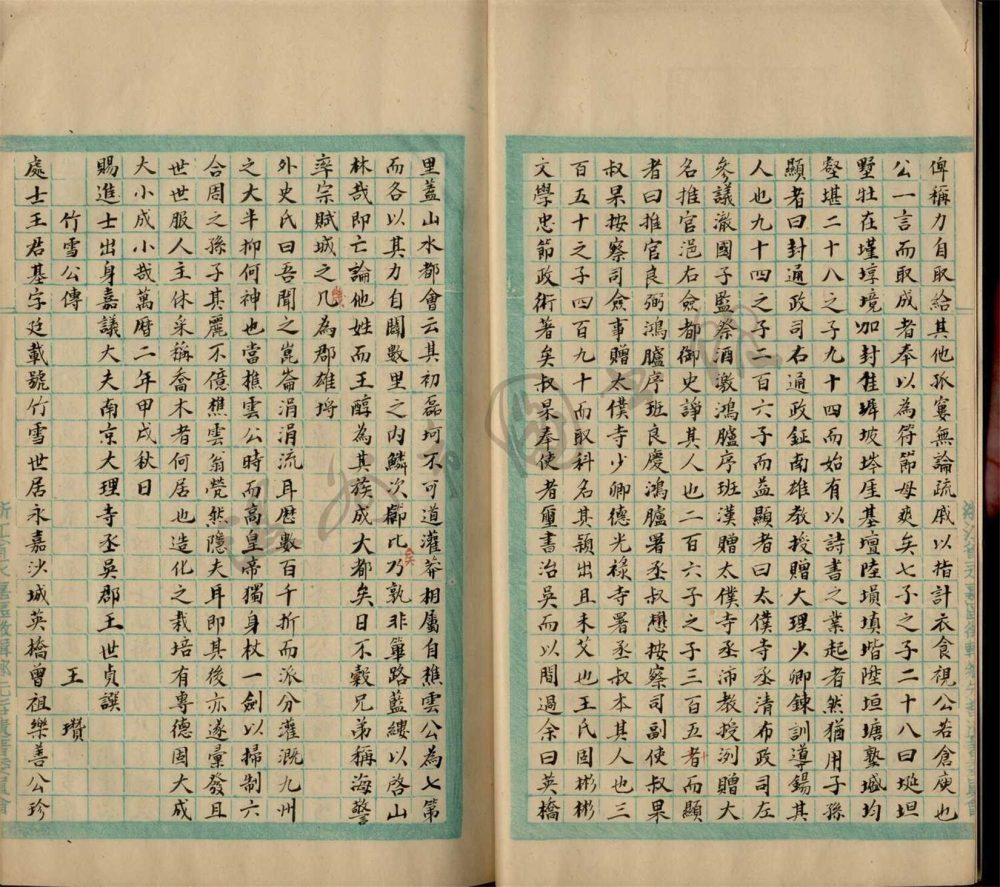 俾稱力自取給其他孤寠無論疏戚以指計衣食視公若倉庾也
公一言而取成者奉以為符節母爽矣七子之子二十八曰埏坦
墅牡在墐埻境加封隹墀坡埁厓基壇陸塤填堦陛垣塘塾城均
壑堪二十八之子九十四而始有以詩書之業起者然猶用子孫
顯者曰封通政司右通政鉦南雄教授贈大理少卿鍊訓導鍚其
人也九十四之子二百六子而益顯者曰太僕寺丞清布政司左
參議澈國子監祭酒激鴻臚序班漢贈太僕寺丞沛教授洌贈大
名推官浥右僉都御史諍其人也二百六子之子三百五者而顯
者曰推官良弼鴻臚序班良慶鴻臚署丞叔懋按察司副使叔果
叔杲按察司僉事贈太僕寺少卿德光祿寺署丞叔本其人也三
百五十之子四百九十而取科名其穎出且未艾也王氏固彬彬
文學忠節政術著矣叔杲奉使者璽書治吳而以間過余曰英橋
里蓋山水都會云其初磊坷不可道灌莽相屬自樵雲公為七第
而各以其力自闢數里之內鱗次櫛比乃孰非篳路藍縷以啓山
矣
林哉即亡論他姓而王醇為其族成大都矣日不穀兄弟稱海警
率宗賦城之几為郡雄埒
外史氏曰吾聞之崑崙涓涓流耳歷數百千折而派分灌溉九州
之大半抑何神也當樵雲公時而高皇帝獨身杖一劍以掃制六
合周之孫子其麗不億樵雲翁煢然隱夫耳即其後亦遂彙發且
世世服人主休采稱喬木者何居也造化之栽培有專德固大成
大小成小哉萬曆二年甲戌秋日
賜進士出身嘉議大夫南京大理寺丞吳郡王世貞譔
竹雪公傳
王瓚
處士王君基字廷載號竹雪世居永嘉沙城英橋曾祖樂善公珍